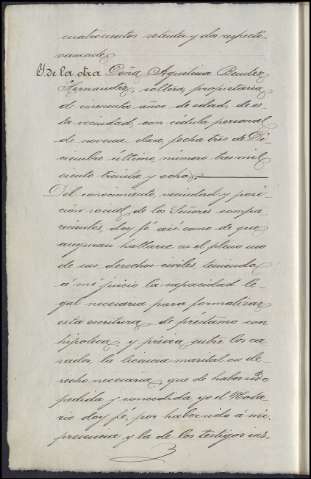 cuatrocientos setenta y dos respecti-
vamente
Y de la otra Doña Agustina
Hernandez, soltera, propietaria
de cincuenta años de edad, de es-
ta vecindad, con cédula personal
de novena clase, fecha tres de Di-
ciembre último, número tres mil
ciento treinta y ocho
Del conocimiento, vecindad y posi-
ción social de los Señores compa-
recientes, doy fé así como de que
aseguran hallarse en el pleno uso
de sus derechos civiles teniendo
á mi juicio la capacidad le-
gal necesaria para formalizar
esta escritura de préstamo con
hipoteca y prévia entre los ca-
sados, la licencia marital en de-
recho necesaria que de haber sido
pedida y concedida yo el Nota-
rio doy fé, por haberlo sido á mi
presencia y la de los testigos ins-